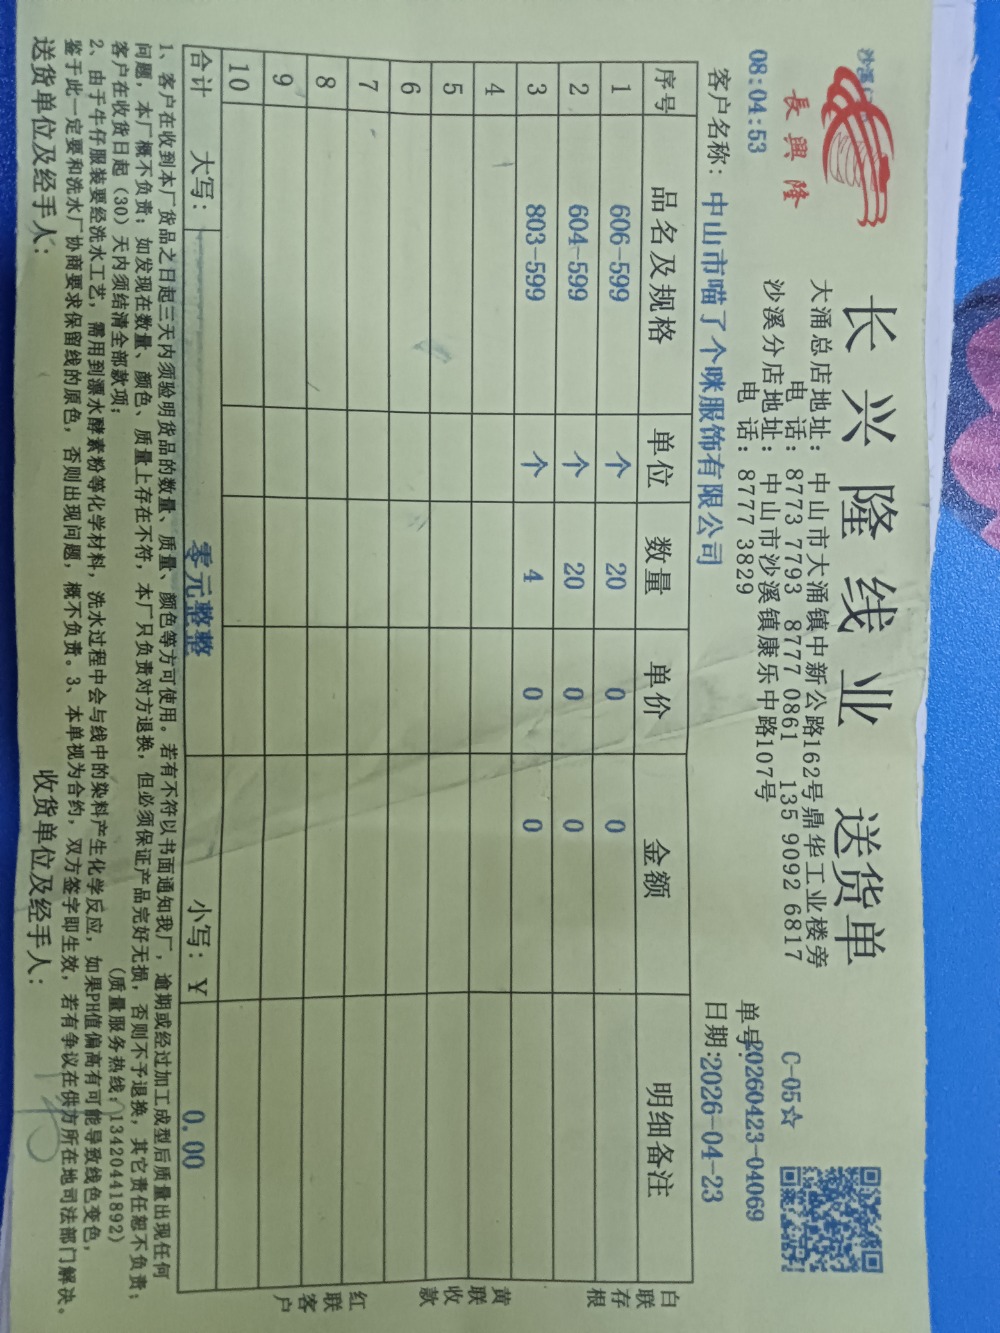 長興隆
08:04:53
长兴隆线业 送货单
大涌总店地址：中山市大涌镇中新公路162号鼎华工业楼旁
电话：8773 7793 8777 0861 135 9092 6817
沙溪分店地址：中山市沙溪镇康乐中路107号
电话：8777 3829
C-05☆
单号:20260423-04069
客户名称：中山市喵了个咪服饰有限公司 日期:2026-04-23
序号 品名及规格 单位 数量 单价 金额 明细备注
1 606-599 个 20 0 0
2 604-599 个 20 0 0
3 803-599 个 4 0 0
4
5
6
7
8
9
10
合计 大写： 零元整整 小写：￥ 0.00
白联存根
黄联收款
红联客户
1、客户在收到本厂货品之日起三天内须验明货品的数量、质量、颜色等方可使用。若有不符以书面通知我厂，逾期或经过加工成型后质量出现任何
问题，本厂概不负责；如发现在数量、颜色、质量上存在不符，本厂只负责对方退换，但必须保证产品完好无损，否则不予退换，其它责任恕不负责；
客户在收货日起（30）天内须结清全部款项； (质量服务热线：13420441892)
2、由于牛仔服装要经洗水工艺，需用到漂水酵素粉等化学材料，洗水过程中会与线中的染料产生化学反应，如果PH值偏高有可能导致线色变色，
鉴于此一定要和洗水厂协商要求保留线的原色，否则出现问题，概不负责。3、本单视为合约，双方签字即生效，若有争议在供方所在地司法部门解决。
送货单位及经手人： 收货单位及经手人：